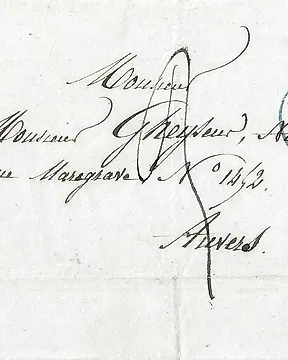 Monsieur
Monsieur Gheyseur, N
ue Maregrave N° 1452.
Anvers.